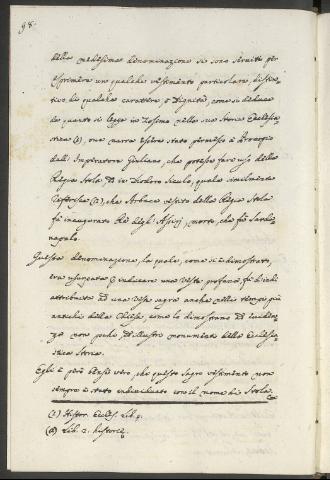 98.
della medesima denominazione si sono serviti per
esprimere un qualche vestimento particolare, distin-
tivo di qualche carattere, o Dignità, come si deduce
da quanto si legge in Zosimo nella sua Storia Ecclesia-
stica (1), ove narra essere stato permesso a Procopio
dall' Imperatore Giuliano, che potesse fare uso della
Regia Stola, ed in Diodoro Siculo, quale similmente
riferisce (2), che Arbace vestito della Regia Stola
fù inaugurato Rè degl' Assirj, morto che fù Sarda-
napalo.
Questa denominazione, la quale, come si è dimostrato,
era usurpata à indicare una Veste profana, fù di indi
attribuita ad una Vesta sagra anche nelli tempi più
antichi della Chiesa, come lo dimostrano ad eviden-
za non pochi ed illustri monumenti della Ecclesia-
stica Storia.
Egli è però bensì vero, che questo sagro vestimento non
sempre è stato individuato con il nome di Stola
(1) Histor. Eccles. Lib. 4.
(2) Lib. 2. historię.